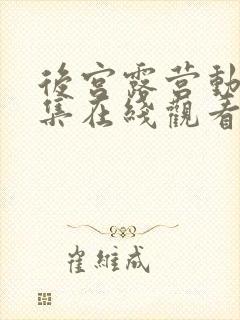 後宮露营動
集在綫觀看
崔維成